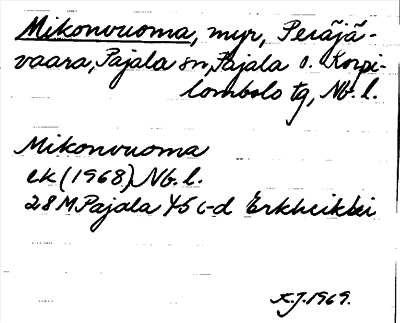 Mikonvuoma, myr, Peräjä-
vaara, Pajala sn, Pajala o. Korpi-
lombolo tg, Nb. l.
Mikonvuoma
ek (1968) Nb. l.
28M Pajala 45 c-d Erkheikki
K.J. 1969.